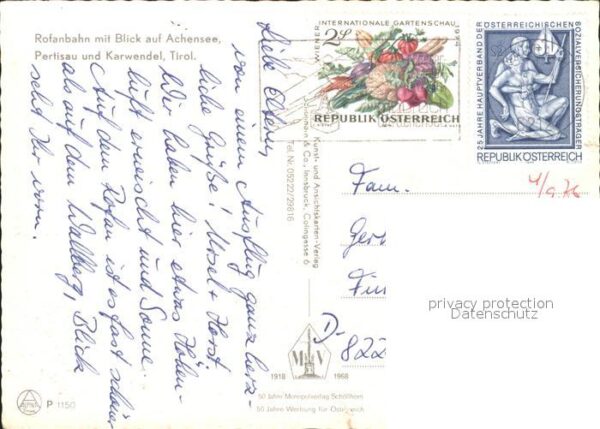 Rofanbahn mit Blick auf Achensee,
Pertisau und Karwendel, Tirol.
Liebe Eltern,
von einem Ausflug ganz herz-
liche Grüße! Ursel + Horst
Wir haben hier etwas Höhen-
luft erwischt und Sonne.
Auf dem Rofan ist es fast schöner
als auf dem Wallberg, Blick
seht Ihr vorn.
P 1150
Kunst- und Ansichtskarten-Verlag
& Co., Innsbruck, Colingasse 6
Tel. Nr. 05222/29816
1918
MV
1968
50 Jahre Monopolverlag Schöllhorn
50 Jahre Werbung für Österreich
WIENER INTERNATIONALE GARTENSCHAU 1974
2S
REPUBLIK ÖSTERREICH
25 JAHRE HAUPTVERBAND DER ÖSTERREICHISCHEN SOZIALVERSICHERUNGSTRÄGER
REPUBLIK ÖSTERREICH
Fam.
D-
822
privacy protection
Datenschutz